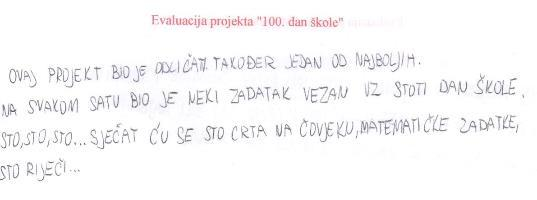 Evaluacija projekta "100. dan škole"
OVAJ PROJEKT BIO JE ODLIČAN. TAKOĐER JEDAN OD NAJBOLJIH.
NA SVAKOM SATU BIO JE NEKI ZADATAK VEZAN UZ STOTI DAN ŠKOLE.
STO, STO, STO... SJEĆAT ĆU SE STO CRTA NA ČOVJEKU, MATEMATIČKE ZADATKE,
STO RIJEČI...